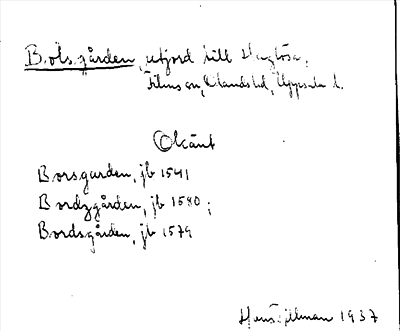 Bolsgården, utjord till Haglösa,
Films sn, Olands hd, Uppsala l.
Okänt
Borsgarden, jb 1541
Bordzgården, jb 1580;
Bordsgården, jb 1579
1937